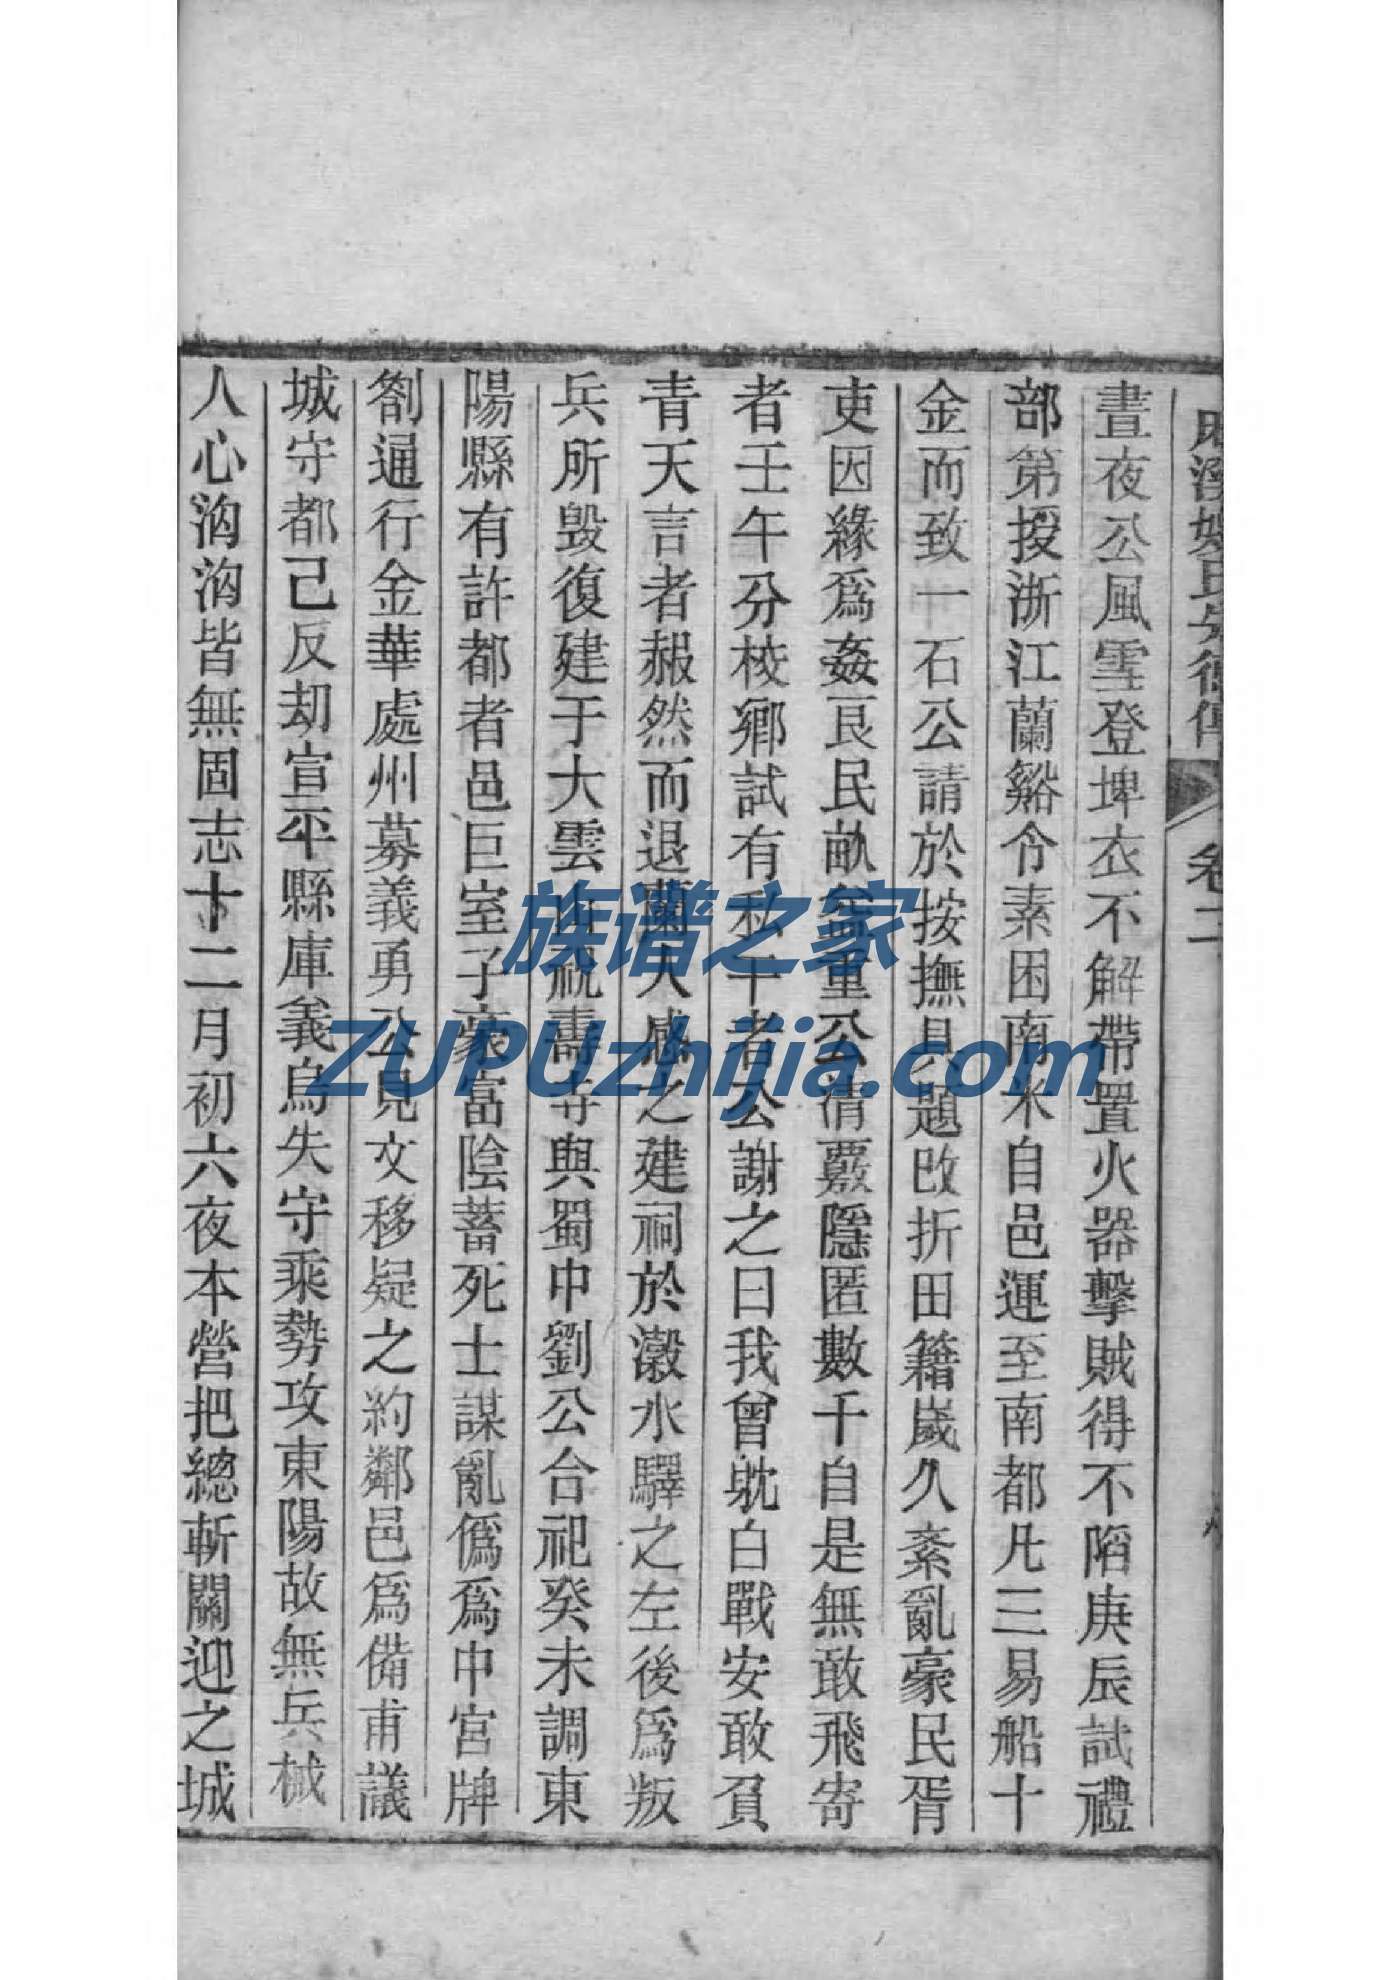 晝夜公風雪登埤衣不解帶置火器擊賊得不陷庚辰試禮
部第授浙江蘭谿令素困南米自邑運至南都凡三易船十
金而致一石公請於按撫具題改折田籍歲久紊亂豪民胥
吏因緣爲姦良民畝畨重公清覈隱匿數千自是無敢飛寄
者壬午分校鄉試有私干者公謝之曰我曾躭白戰安敢負
青天言者赧然而退蘭人感之建祠於瀔水驛之左後爲叛
兵所毀復建于大雲山祝壽寺與蜀中劉公合祀癸未調東
陽縣有許都者邑巨室子豪富陰蓄死士謀亂僞爲中宮牌
劄通行金華處州募義勇公見文移疑之約鄰邑爲備甫議
城守都己反刧宣平縣庫義烏失守乘勢攻東陽故無兵械
人心洶洶皆無固志十二月初六夜本營把總斬關迎之城
卷二
族谱之家
ZUPUzhijia.com